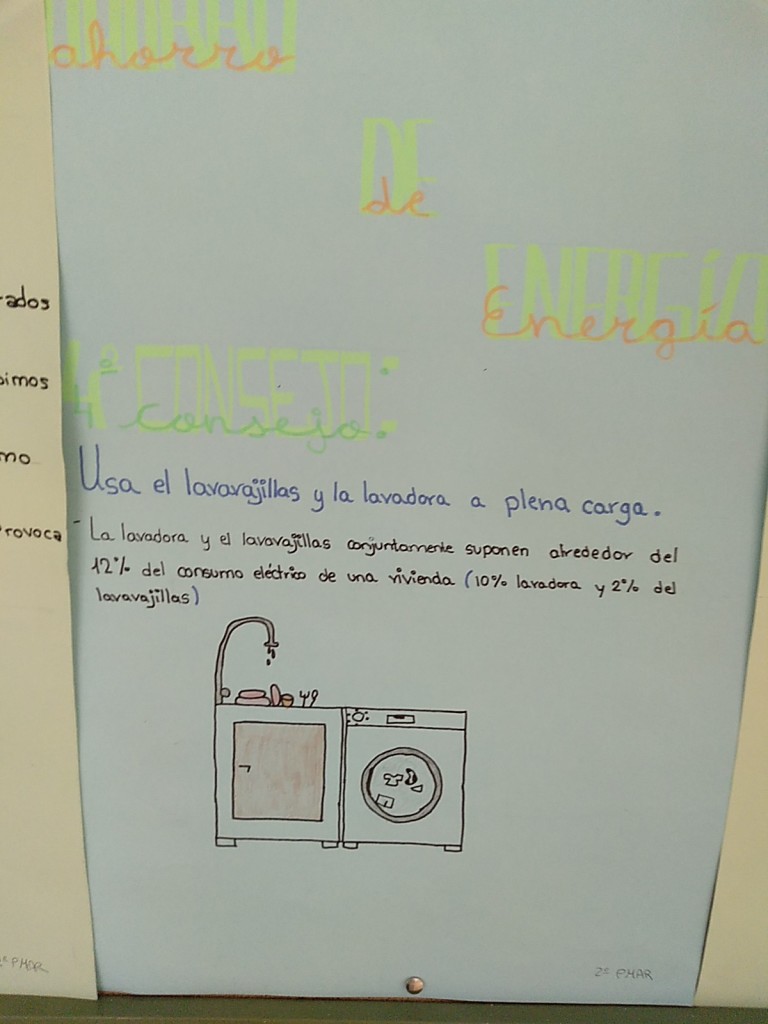 AHORRO
ahorro
DE
de
ENERGÍA
Energía
4º CONSEJO:
4º consejo:
Usa el lavavajillas y la lavadora a plena carga.
- La lavadora y el lavavajillas conjuntamente suponen alrededor del
12% del consumo eléctrico de una vivienda (10% lavadora y 2% del
lavavajillas)
2º PMAR
rados
bimos
mo
Provoca
2º PMAR